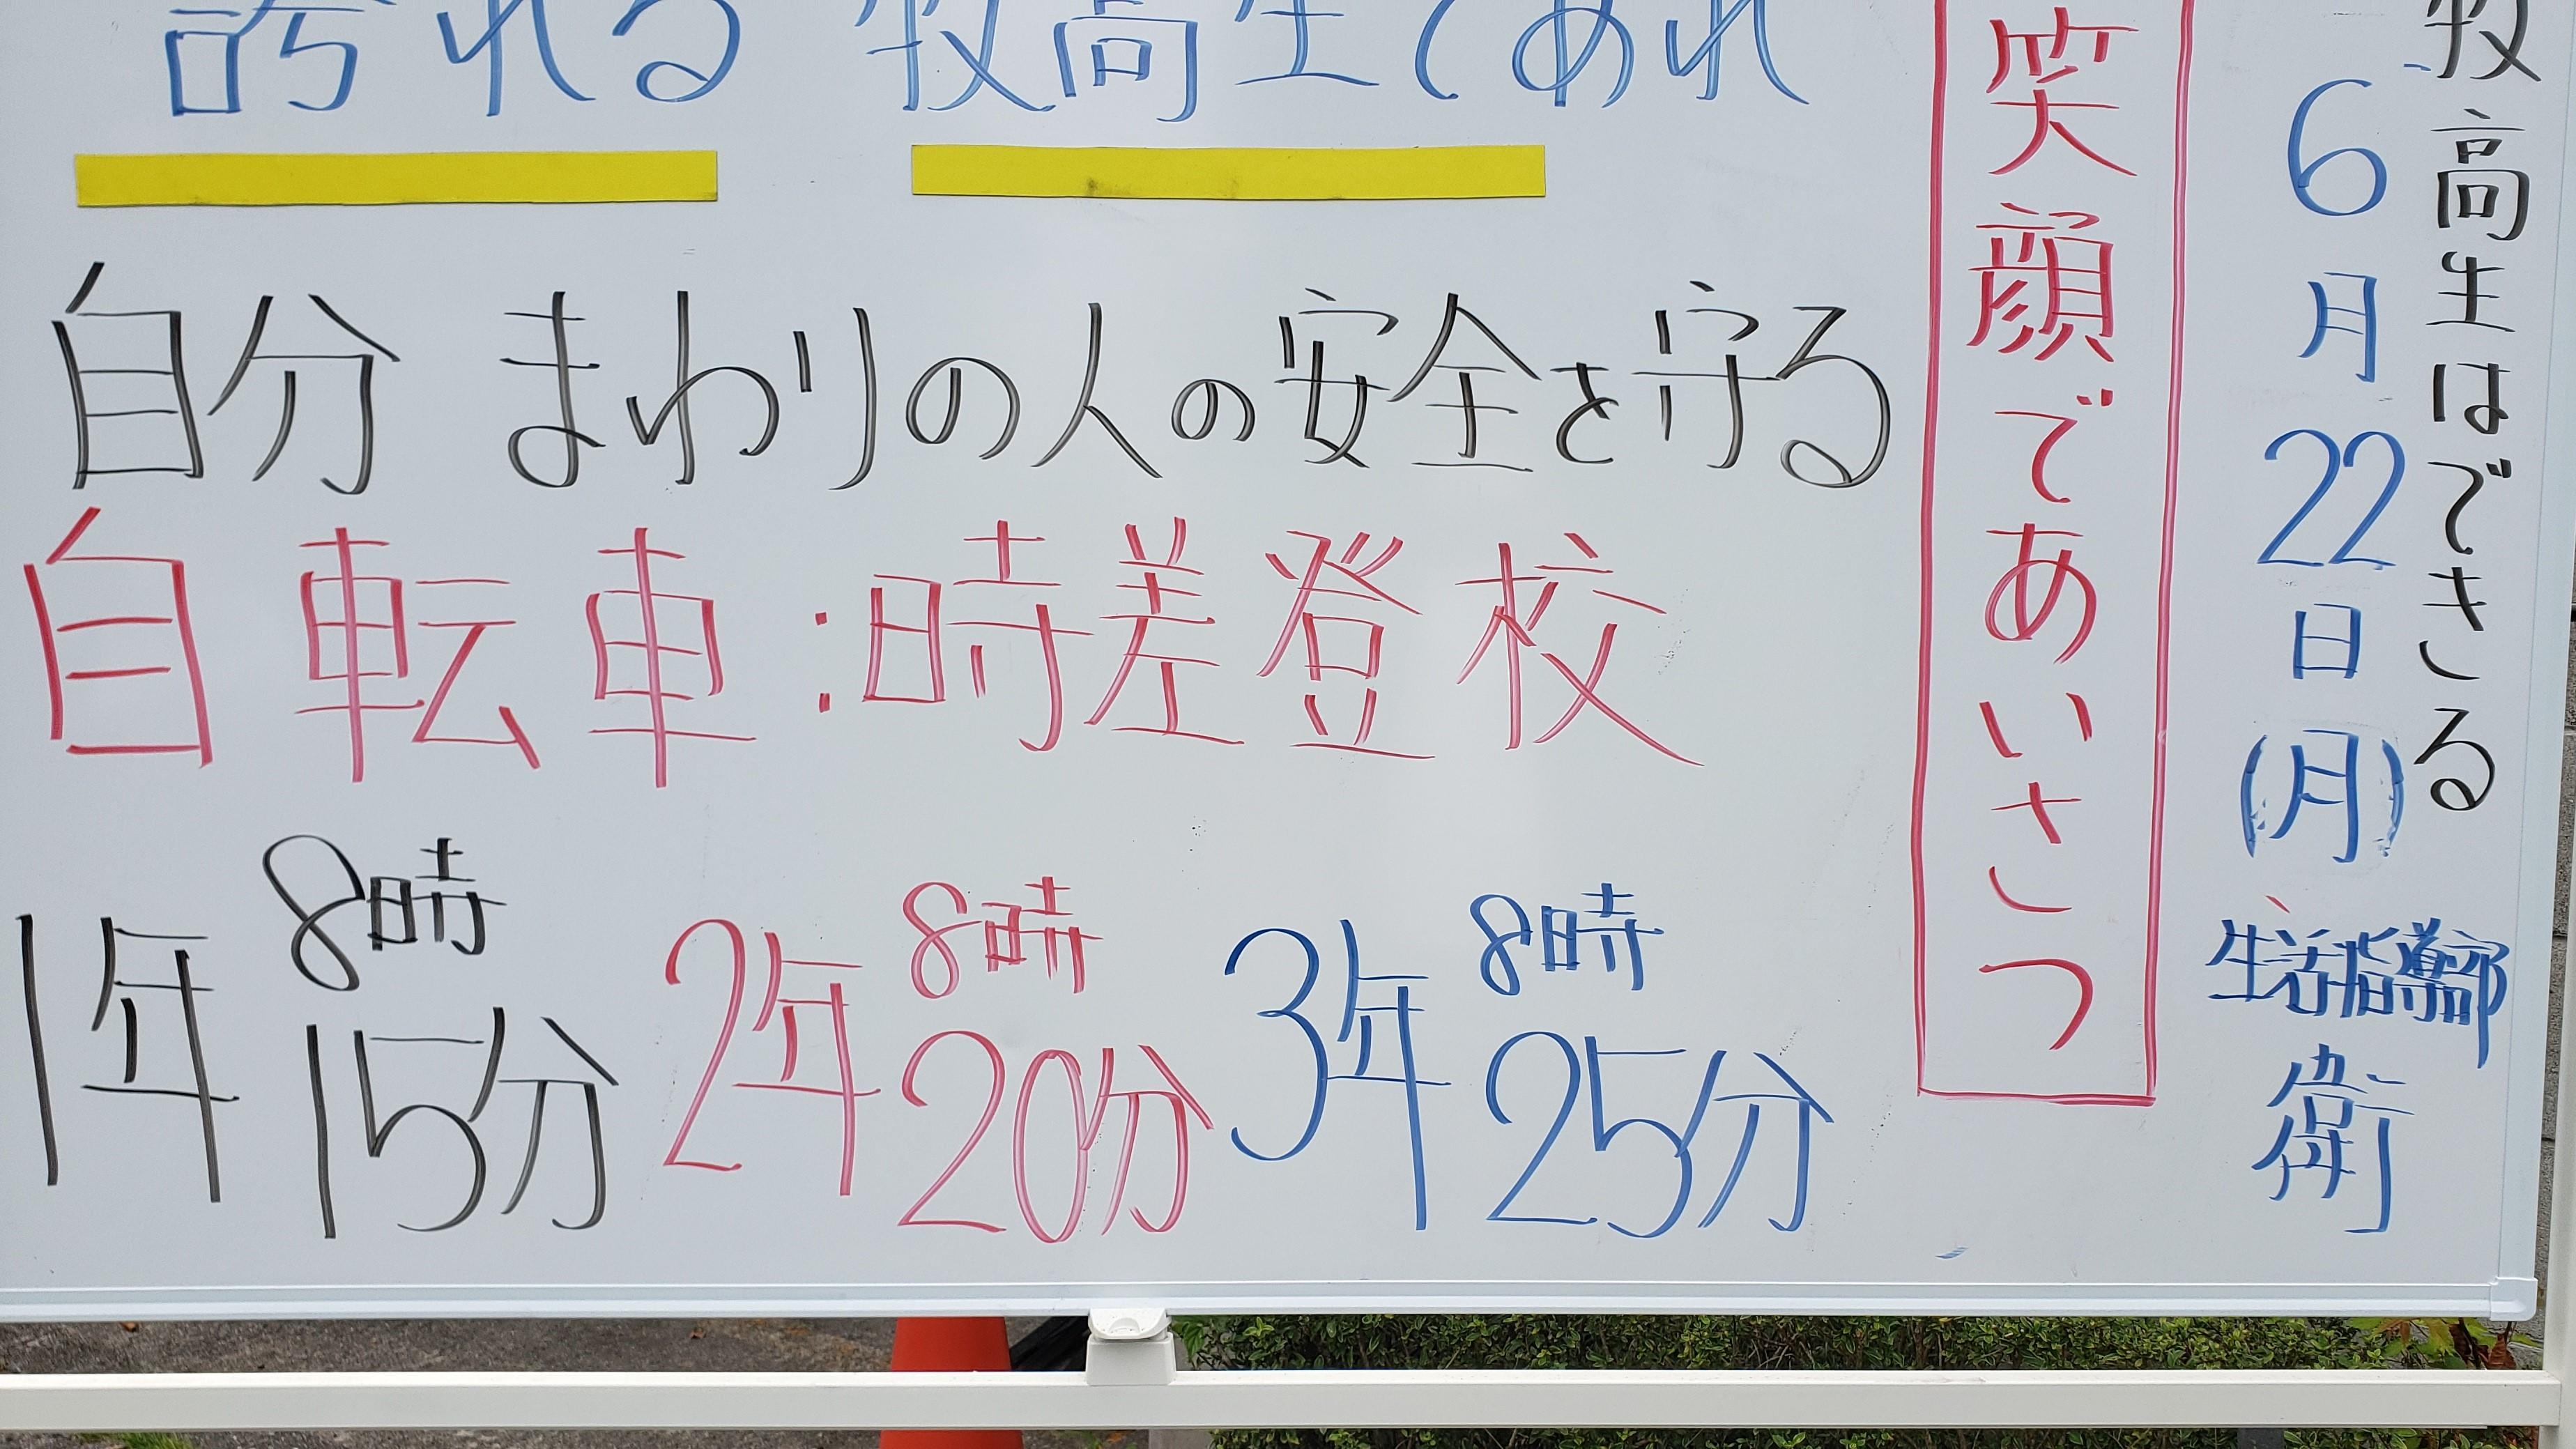 牧高生はできる
6月22日(月)
生活指導部
衛
笑顔であいさつ
誇れる 牧高生であれ
自分 まわりの人の安全を守る
自転車:時差登校
1年 8時15分 2年 8時20分 3年 8時25分